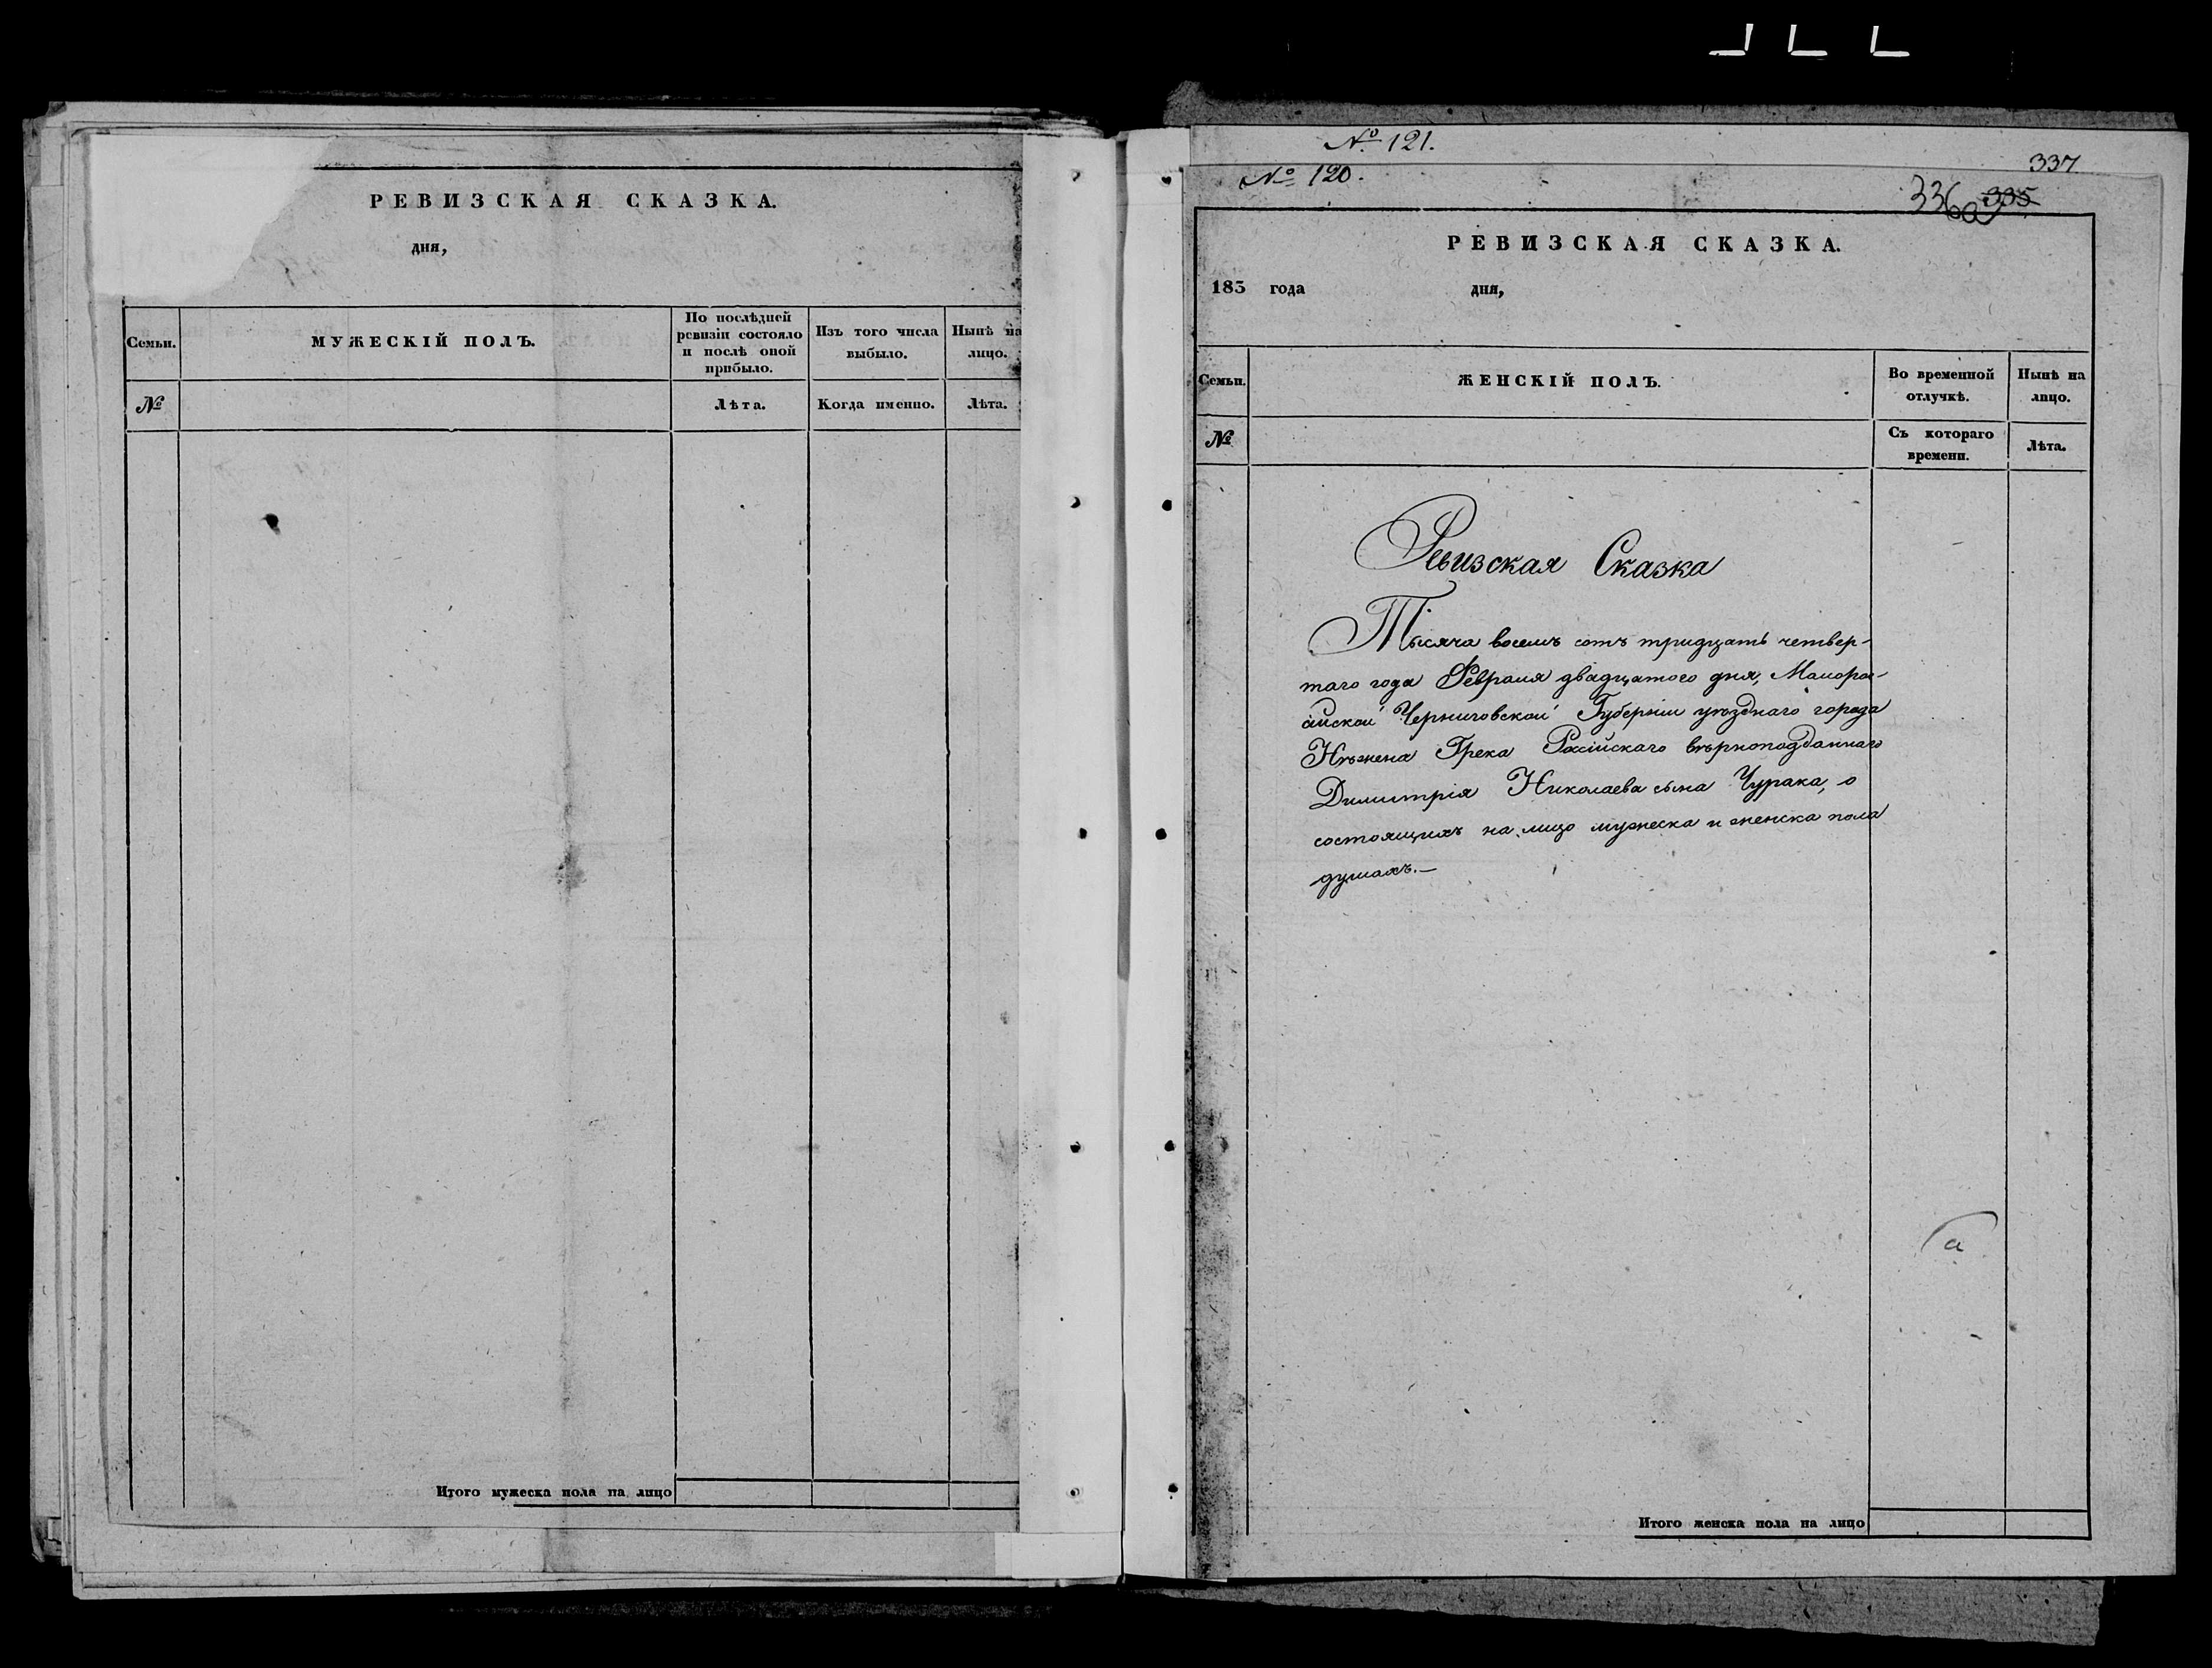 РЕВИЗСКАЯ СКАЗКА.
дня,
Семьи.
МУЖЕСКІЙ ПОЛЪ.
По послѣдней
ревизіи состояло
и послѣ оной
прибыло.
Изъ того числа
выбыло.
Нынѣ на
лицо.
№
Лѣта.
Когда именно.
Лѣта.
Итого мужеска пола на лицо
№ 121.
337
№ 120.
336 335
РЕВИЗСКАЯ СКАЗКА.
183 года дня,
Семьи.
ЖЕНСКІЙ ПОЛЪ.
Во временной
отлучкѣ.
Нынѣ на
лицо.
№
Съ котораго
времени.
Лѣта.
Ревизская Сказка
Тысяча восемъ сотъ тридцать четвер-
таго года Февраля двадцатого дня, Малорос-
сійской Черниговской Губерніи уѣзднаго города
Нѣжена Грека Російскаго вѣрноподданнаго
Димитрія Николаева сына Чурака, о
состоящихъ на лицо мужеска и женска пола
душахъ.—
а
Итого женска пола на лицо